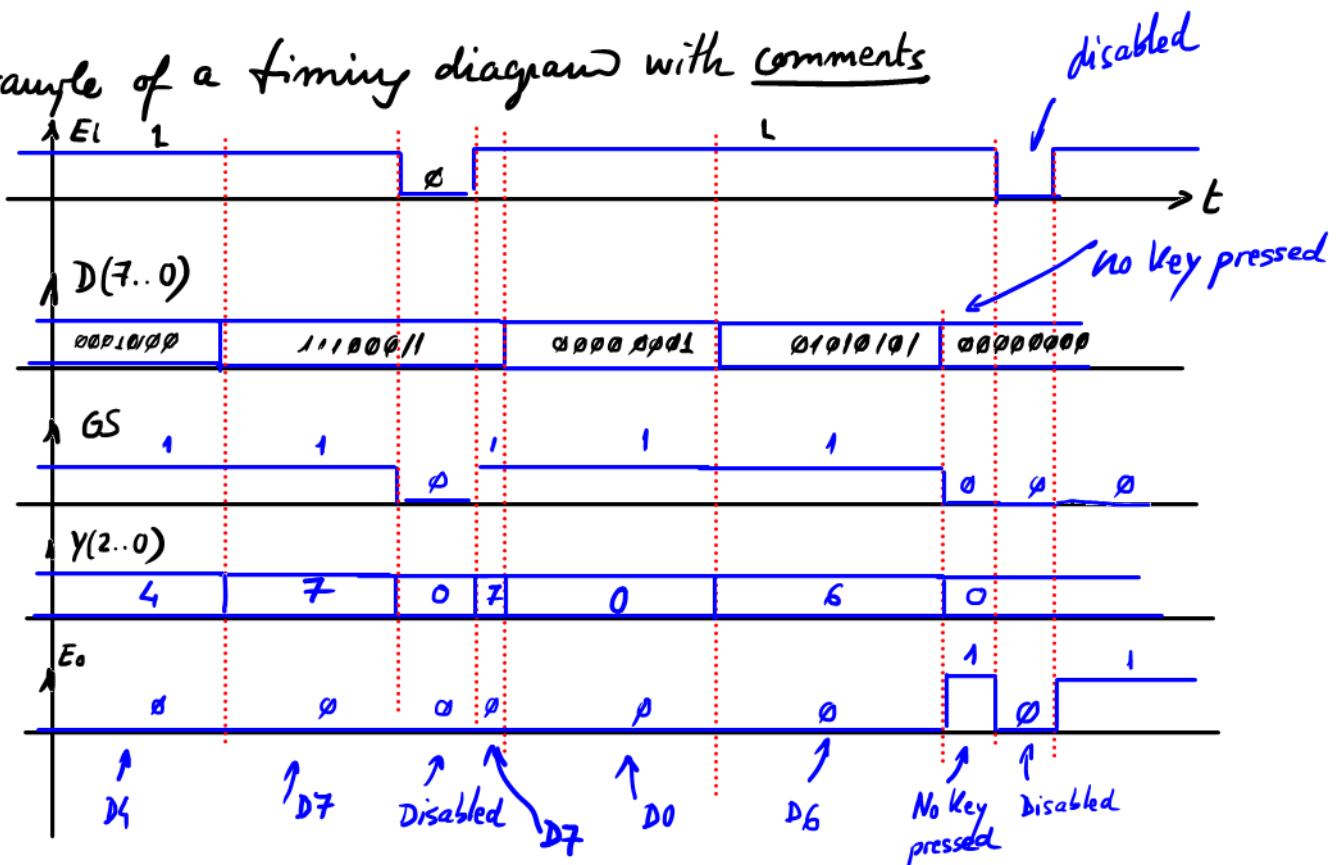 ample of a timing diagram with comments
disabled
EI 1 1
0
t
D(7..0)
no key pressed
00010100 11100011 00000001 01010101 00000000
GS
1 1 0 1 1 1 0 0 0
Y(2..0)
4 7 0 7 0 6 0
Eo
0 0 0 0 0 0 1 0 1
D4 D7 Disabled D7 D0 D6 No Key pressed Disabled